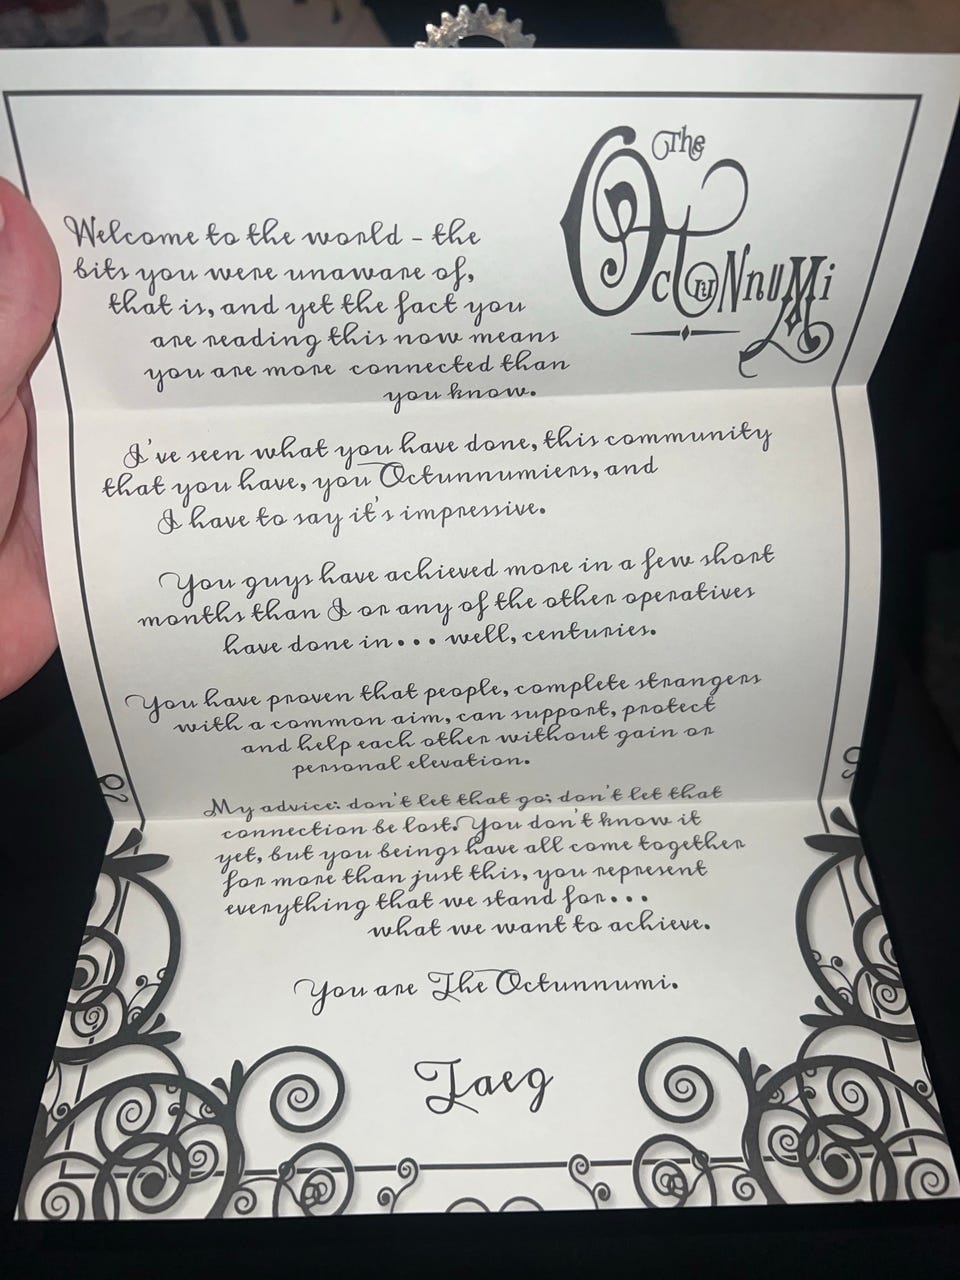 The
Octunnumi
Welcome to the world - the
bits you were unaware of,
that is, and yet the fact you
are reading this now means
you are more connected than
you know.
I've seen what you have done, this community
that you have, you Octunnumiers, and
I have to say it's impressive.
You guys have achieved more in a few short
months than I or any of the other operatives
have done in... well, centuries.
You have proven that people, complete strangers
with a common aim, can support, protect
and help each other without gain or
personal elevation.
My advice: don't let that go; don't let that
connection be lost. You don't know it
yet, but you beings have all come together
for more than just this, you represent
everything that we stand for...
what we want to achieve.
You are The Octunnumi.
Taeg